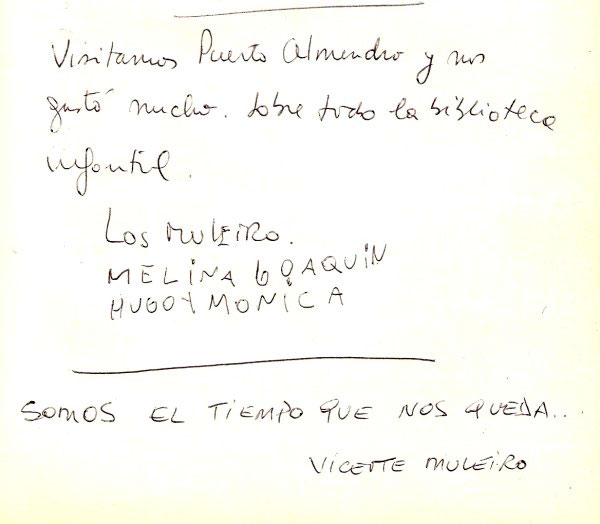 Visitamos Puerto Almendro y nos
gustó mucho. Sobre todo la biblioteca
infantil.
Los MULEIRO.
MELINA JOAQUIN
HUGO Y MONICA
SOMOS EL TIEMPO QUE NOS QUEDA...
VICENTE MULEIRO